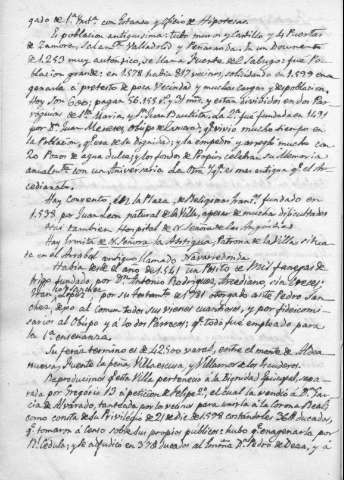 gado de 1ª Inst.ª con Estanco y Oficio de Hipotecas.
Es poblacion antiquisima: tubo muros y Castillo y 4 Puertas
de Zamora, Salam.ca Valladolid y Peñaranda. En un Documento
de 1253 muy autentico, se llama Fuente de Saluço: fue Po-
blacion grande: en 1578 habia 817 vecinos, solicitando en 1599 ena-
genarla a pretesto de poca Vecindad y muchas cargas y despoblacion.
Hoy son 620; pagan 56.158 r.s al año, y estan divididos en dos Par-
roquias de S.ta Maria, y S.n Juan Bautista. La 2ª fue fundada en 1491
por D.n Juan Meneses, Obispo de Zamora; q.e vivio mucho tiempo en
la Poblacion, q.e era de su dignidad; y la empedró y arregló mucho con
Pozo de agua dulce; y los fondos de Propios celebran su memoria
anualm.te con un Aniversario. La otra Yg.a es mas antigua q.e el Ar-
cedianato.
Hay Convento, en la Plaza, de Religiosas Franc.s fundado en
1538 por Juan Leon natural de la Villa, apesar de muchas dificultades
Hay tambien Hospital de N. Señora de las Angustias
Hay Ermita de N. Señora la Antigua, Patrona de la Villa, situa-
da en el Arrabal antiguo llamado Navarredonda.
Habia desde el año de 1541 un Posito de Mil fanegas de
trigo fundado, por D.n Antonio Rodriguez, Arcediano,
por su testam.to de 1781 otorgado ante Pedro San-
chez, dejo al comun todos sus vienes cuantiosos, y por fideicomi-
sarios al Obispo y á los dos Parrocos; q.e todo fue empleado para
la 1ª enseñanza.
Su feria termino es de 42500 varas, entre el monte de Aldea
Nueva, Fuente la peña, Villaescusa, y Villamor de los Escuderos.
Reproducimos q.e esta Villa pertenecio á la Dignidad Episcopal, sepa-
rada por Gregorio 13 á peticion de Felipe 2º, el cual la vendió á D.n Gar-
cia de Alvarado, tanteada por los vecinos para unirla á la Corona Real;
como consta de su Privilegio de 21 de Dic.e de 1598 costandoles 36 M ducados,
q.e tomaron á Censo sobre sus propios publicos: hubo q.e enagenarla por
R.l Cedula; y se adjudicó en 37 M ducados al Señor D.n Pedro de Deza, y á